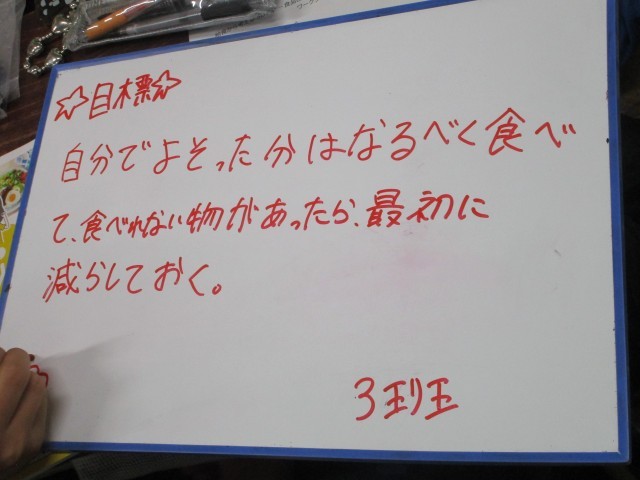 ☆目標☆
自分でよそった分はなるべく食べ
て、食べれない物があったら、最初に
減らしておく。
3班